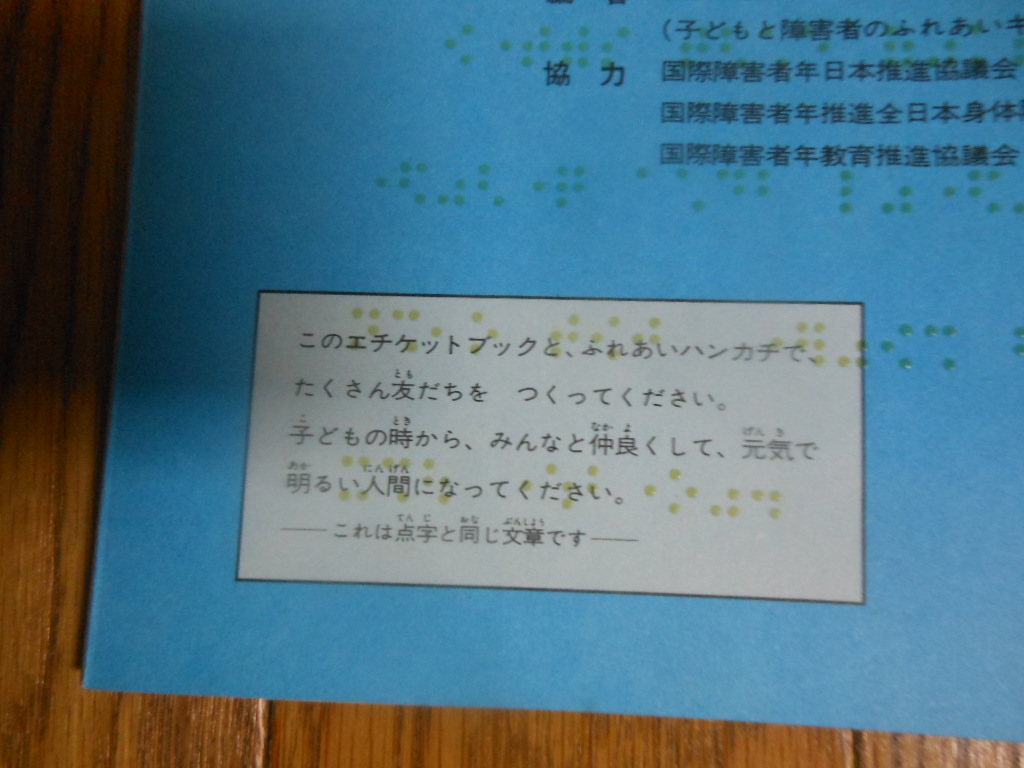 (子どもと障害者のふれあいキ
協力 国際障害者年日本推進協議会
国際障害者年推進全日本身体
国際障害者年教育推進協議会
このエチケットブックと、ふれあいハンカチで、
たくさん友だちを つくってください。
子どもの時から、みんなと仲良くして、元気で
明るい人間になってください。
——これは点字と同じ文章です——